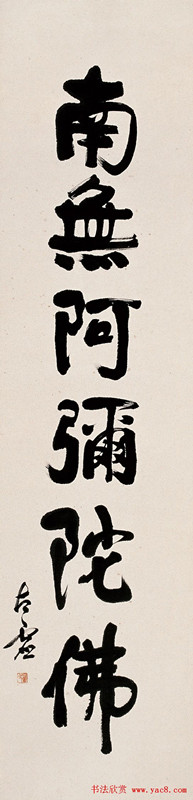 南無阿彌陀佛
书法欣赏
www.yac8.com